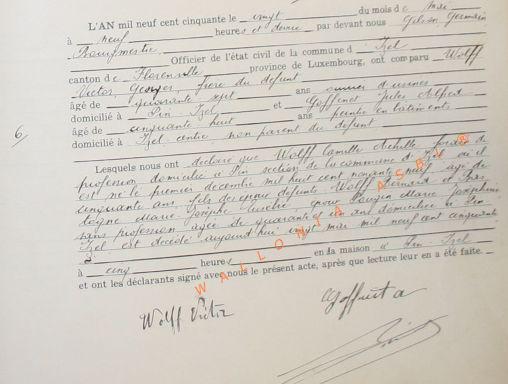 L'AN mil neuf cent cinquante le vingt du mois de mai
à neuf heures et demie par devant nous Gilson Germain
Bourgmestre Officier de l'état civil de la commune d Izel
canton de Florenville province de Luxembourg, ont comparu Wolff
Victor, frère du défunt
âgé de quarante sept ans
domicilié à Pin Izel et Goffinet Jules Alfred
âgé de cinquante huit ans peintre en bâtiments
domicilié à Izel non parent du défunt
6
Lesquels nous ont déclaré que Wolff Camille Achille
profession domicilié à Pin section de la commune d'Izel où il
est né le premier décembre mil huit cent nonante neuf, âgé de
cinquante ans, fils des époux défunts Wolff Bernard et
Marie Joséphine
sans profession âgée de quarante et un ans domiciliée à Pin
Izel est décédé aujourd'hui vingt mai mil neuf cent cinquante
à cinq heures en sa maison à Pin Izel
et ont les déclarants signé avec nous le présent acte, après que lecture leur en a été faite.
WALLONIA ASBL
Wolff Victor
Goffinet a